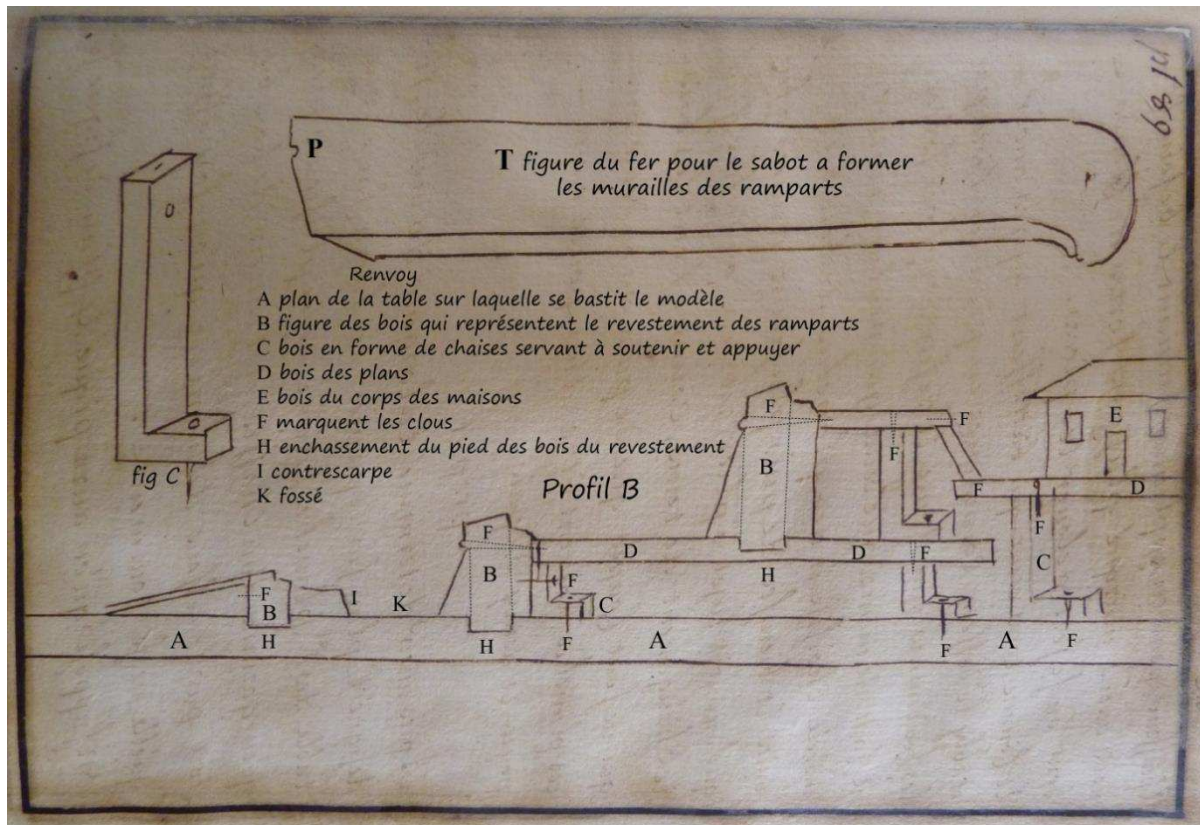 pl 89
P
T figure du fer pour le sabot a former
les murailles des ramparts
Renvoy
A plan de la table sur laquelle se bastit le modèle
B figure des bois qui représentent le revestement des ramparts
C bois en forme de chaises servant à soutenir et appuyer
D bois des plans
E bois du corps des maisons
F marquent les clous
H enchassement du pied des bois du revestement
I contrescarpe
K fossé
fig C
Profil B
F F E
B F
F D
F F
F D D F C
B F H
F I K C
B
A H H F A F A F